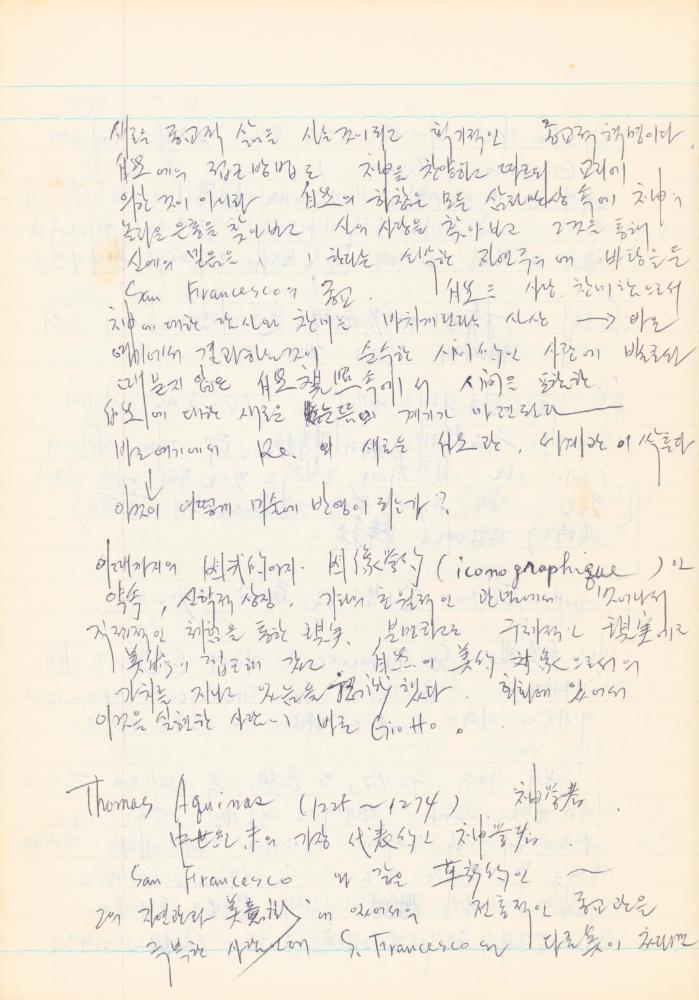 새로운 종교적 삶을 사는 것이라고 획기적인 종교적 혁명이다.
自然에의 접근방법도 神을 찬양하고 따르되 교리에
의한 것이 아니라 自然의 화창은 모든 삼라만상 속에 神의
놀라운 은총을 찾아보고 신의 사랑을 찾아보고 그것을 통해
신에의 믿음을 한다는 소박한 자연주의에 바탕을 둔
San Francesco의 종교. 自然은 사랑. 찬미함으로서
神에 대한 감사와 찬미를 바치게 된다는 사상 → 바로
여기에서 결과하는 것이 순수한 시인적인 사람에
때묻지 않은 自然 속에서 시인을 통한
自然에 대한 새로운 눈뜸의 계기가 마련된다
바로 여기에서 Re.의 새로운 自然관, 세계관이 싹튼다
↓
이것이 어떻게 미술에 반영이 되는가?
이때까지의 図式的이자. 図像学的 (iconographique) 인
약속, 신학적 상징, 기타의 초월적인 관념에서 벗어나서
직접적인 체험을 통한 現実 분명하고 구체적인 現実에로
美術이 접근해 갔고 自然이 美的 対象으로서의
가치를 지니고 있음을 했다. 회화에 있어서
이것을 실현한 사람이 바로 Giotto.
Thomas Aquinas (1225~1274) 神学者.
中世紀末의 가장 代表的인 神学者.
San Francesco 와 같은 革新的인 ~
그의 자연관과 에 있어서의 전통적인 종교관을
극복한 사람인데 S. Francesco와 다른 美이